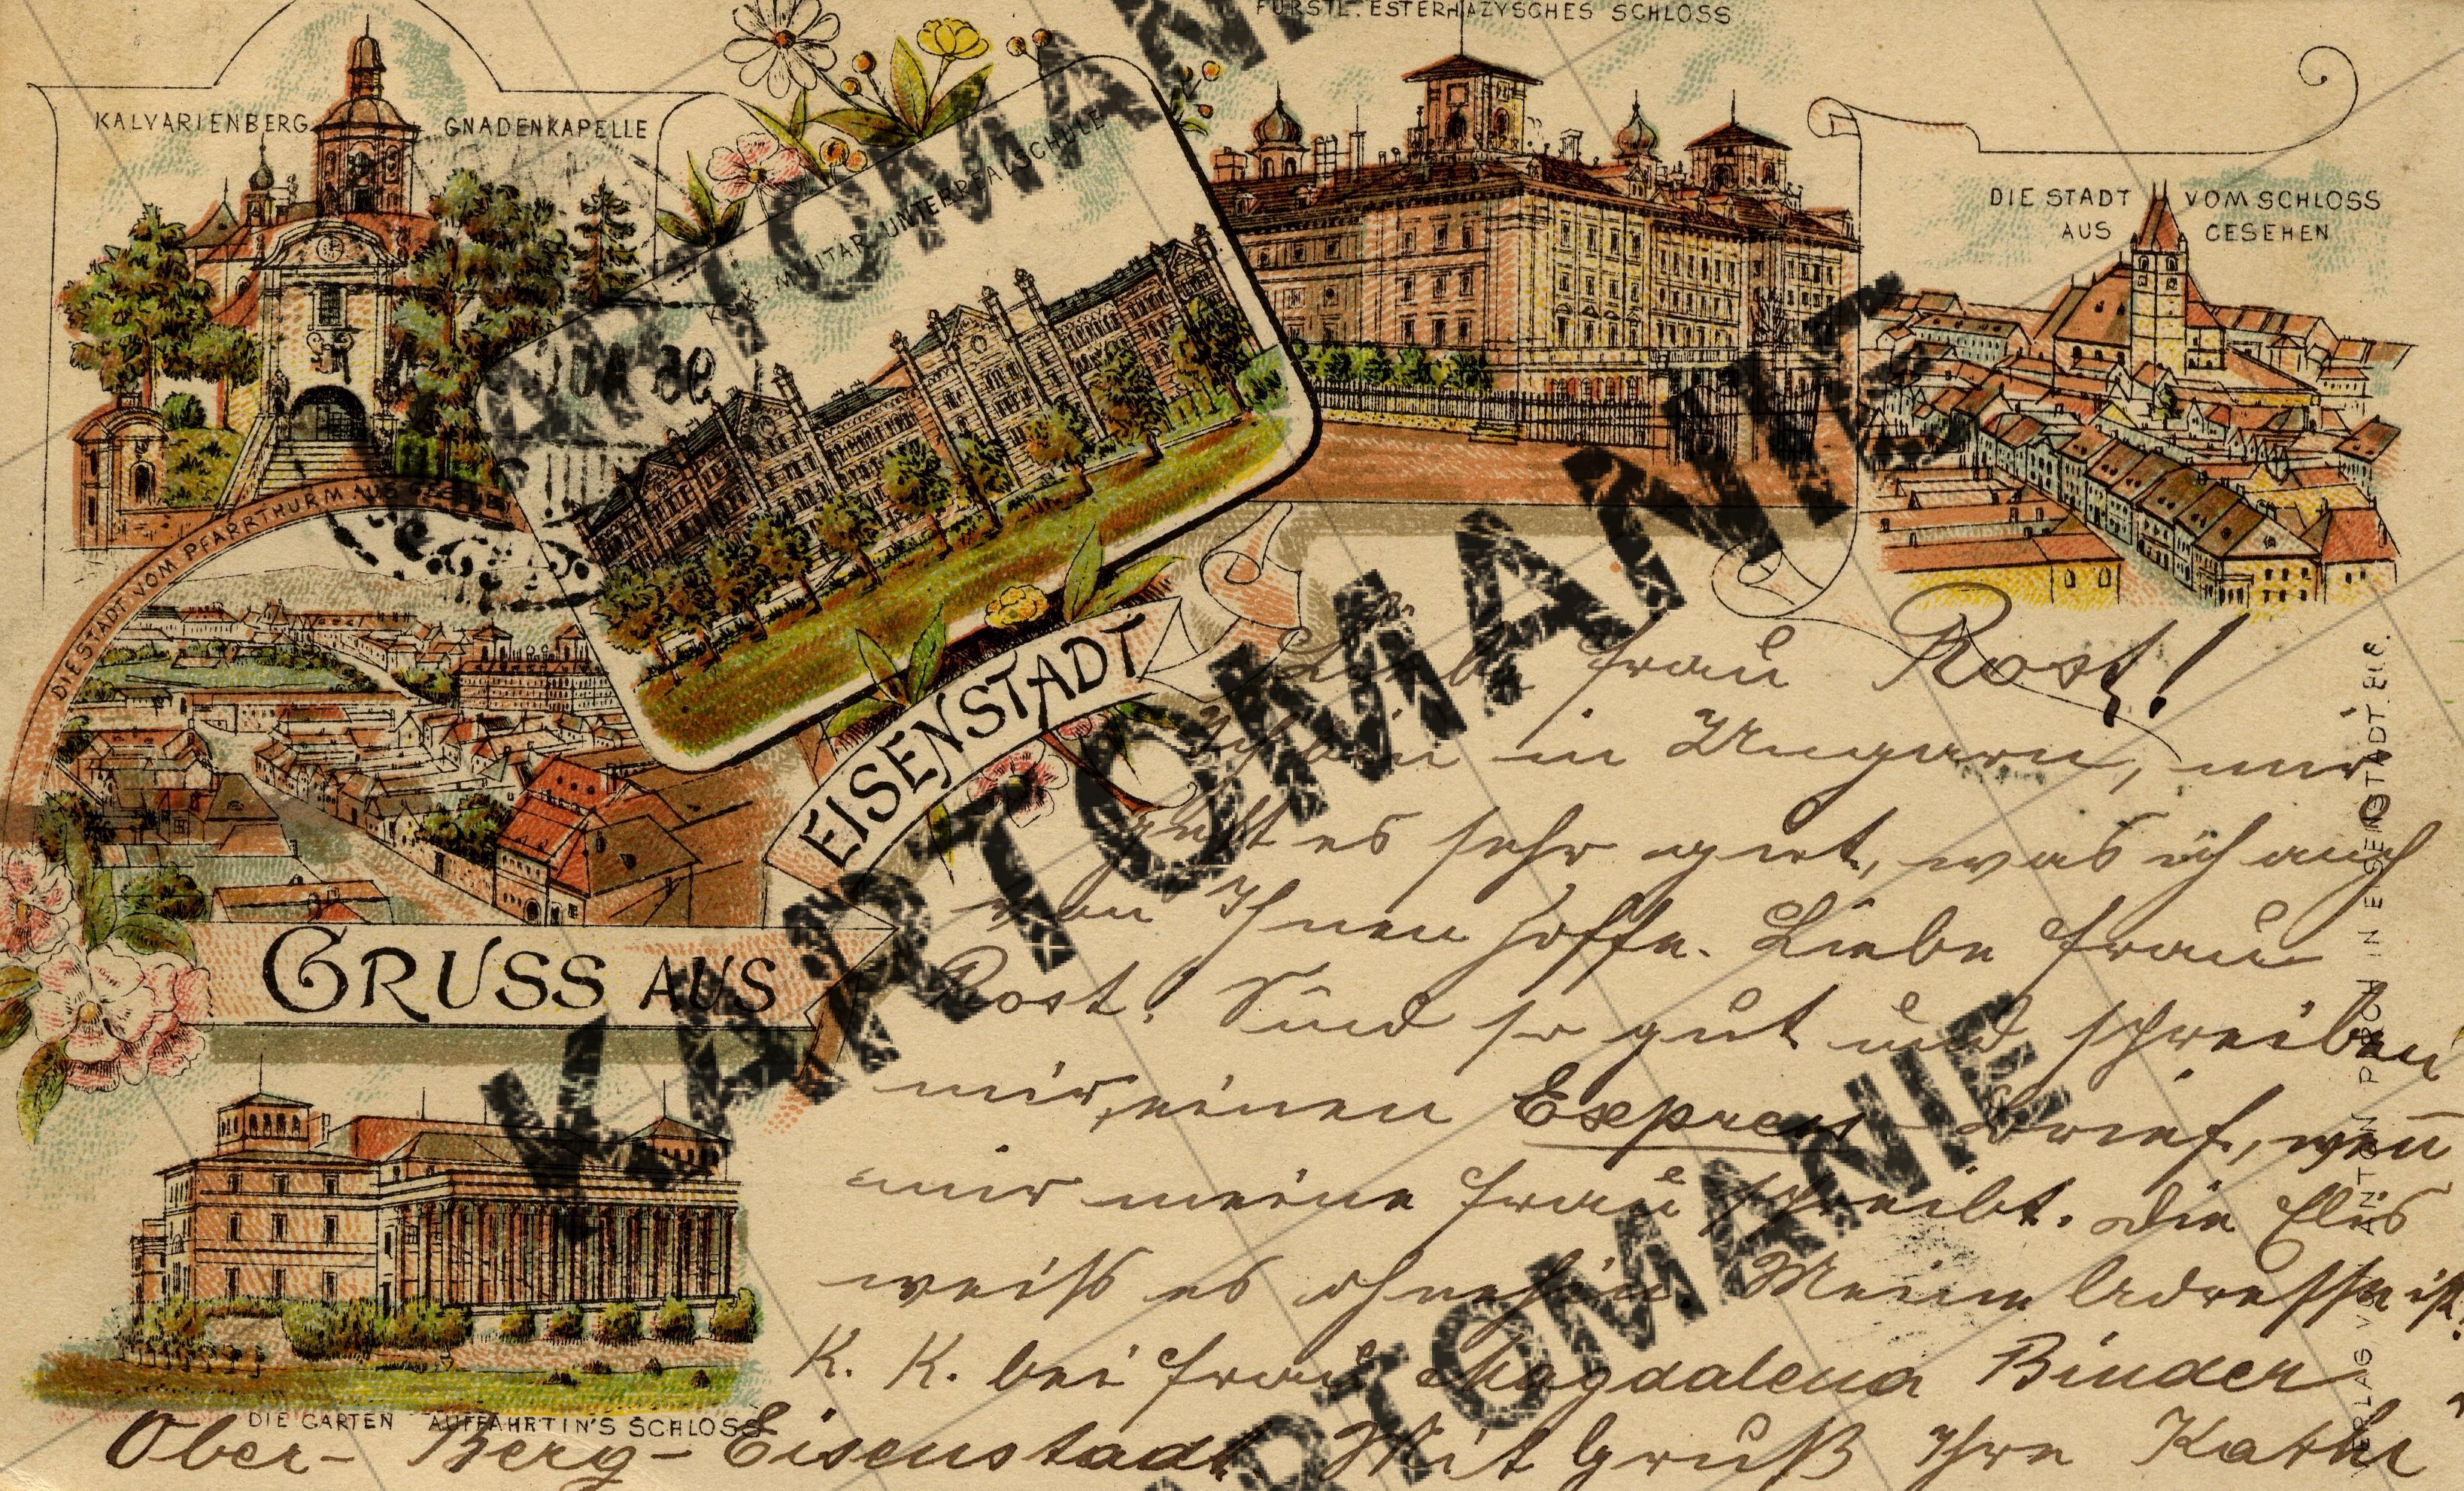 FÜRSTL. ESTERHAZYSCHES SCHLOSS
KALVARIENBERG GNADENKAPELLE
K.u.K. MILITÄR-UNTERREALSCHULE
DIE STADT VOM SCHLOSS
AUS GESEHEN
DIE STADT VOM PFARRTHURM AUS GESEHEN
EISENSTADT
GRUSS AUS
DIE GARTEN AUFFAHRT IN'S SCHLOSS
Liebe Frau Rost!
Ich bin in Ungarn, mir
geht es sehr gut, was ich auch
von Ihnen hoffe. Liebe Frau
Rost! Sind so gut und schreiben
mir, einen Express Brief, wen̄
mir meine Frau schreibt. Die
weiß es ohnehin. Meine Adresse ist:
K. K. bei Frau Magdalena Binder
Ober-Berg-Eisenstadt. Mit Gruß Ihre Kathi
VERLAG VON ANTON IN EISENSTADT.
KARTOMANIE
KARTOMANIE
KARTOMANIE